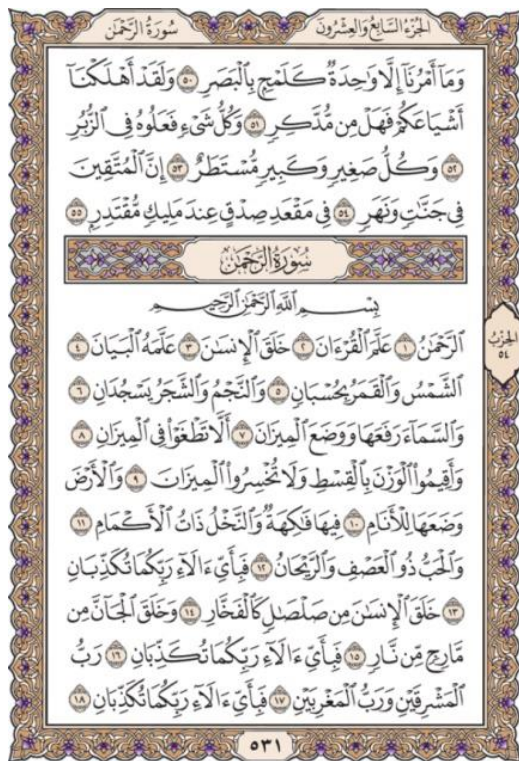 سُورَةُ الرَّحْمَٰن
الجُزْءُ السَّابِعُ وَالعِشْرُونَ
وَمَآ أَمْرُنَآ إِلَّا وَٰحِدَةٌ كَلَمْحٍۭ بِٱلْبَصَرِ ٥٠ وَلَقَدْ أَهْلَكْنَآ
أَشْيَاعَكُمْ فَهَلْ مِن مُّدَّكِرٍ ٥١ وَكُلُّ شَىْءٍ فَعَلُوهُ فِى ٱلزُّبُرِ
٥٢ وَكُلُّ صَغِيرٍ وَكَبِيرٍ مُّسْتَطَرٌ ٥٣ إِنَّ ٱلْمُتَّقِينَ
فِى جَنَّٰتٍ وَنَهَرٍ ٥٤ فِى مَقْعَدِ صِدْقٍ عِندَ مَلِيكٍ مُّقْتَدِرٍۭ ٥٥
سُورَةُ الرَّحْمَٰن
بِسْمِ ٱللَّهِ ٱلرَّحْمَٰنِ ٱلرَّحِيمِ
ٱلرَّحْمَٰنُ ١ عَلَّمَ ٱلْقُرْءَانَ ٢ خَلَقَ ٱلْإِنسَٰنَ ٣ عَلَّمَهُ ٱلْبَيَانَ ٤
ٱلشَّمْسُ وَٱلْقَمَرُ بِحُسْبَانٍ ٥ وَٱلنَّجْمُ وَٱلشَّجَرُ يَسْجُدَانِ ٦
وَٱلسَّمَآءَ رَفَعَهَا وَوَضَعَ ٱلْمِيزَانَ ٧ أَلَّا تَطْغَوْا۟ فِى ٱلْمِيزَانِ ٨
وَأَقِيمُوا۟ ٱلْوَزْنَ بِٱلْقِسْطِ وَلَا تُخْسِرُوا۟ ٱلْمِيزَانَ ٩ وَٱلْأَرْضَ
وَضَعَهَا لِلْأَنَامِ ١٠ فِيهَا فَٰكِهَةٌ وَٱلنَّخْلُ ذَاتُ ٱلْأَكْمَامِ ١١
وَٱلْحَبُّ ذُو ٱلْعَصْفِ وَٱلرَّيْحَانُ ١٢ فَبِأَىِّ ءَالَآءِ رَبِّكُمَا تُكَذِّبَانِ
١٣ خَلَقَ ٱلْإِنسَٰنَ مِن صَلْصَٰلٍ كَٱلْفَخَّارِ ١٤ وَخَلَقَ ٱلْجَآنَّ مِن
مَّارِجٍ مِّن نَّارٍ ١٥ فَبِأَىِّ ءَالَآءِ رَبِّكُمَا تُكَذِّبَانِ ١٦ رَبُّ
ٱلْمَشْرِقَيْنِ وَرَبُّ ٱلْمَغْرِبَيْنِ ١٧ فَبِأَىِّ ءَالَآءِ رَبِّكُمَا تُكَذِّبَانِ ١٨
الحِزْبُ
٥٤
٥٣١